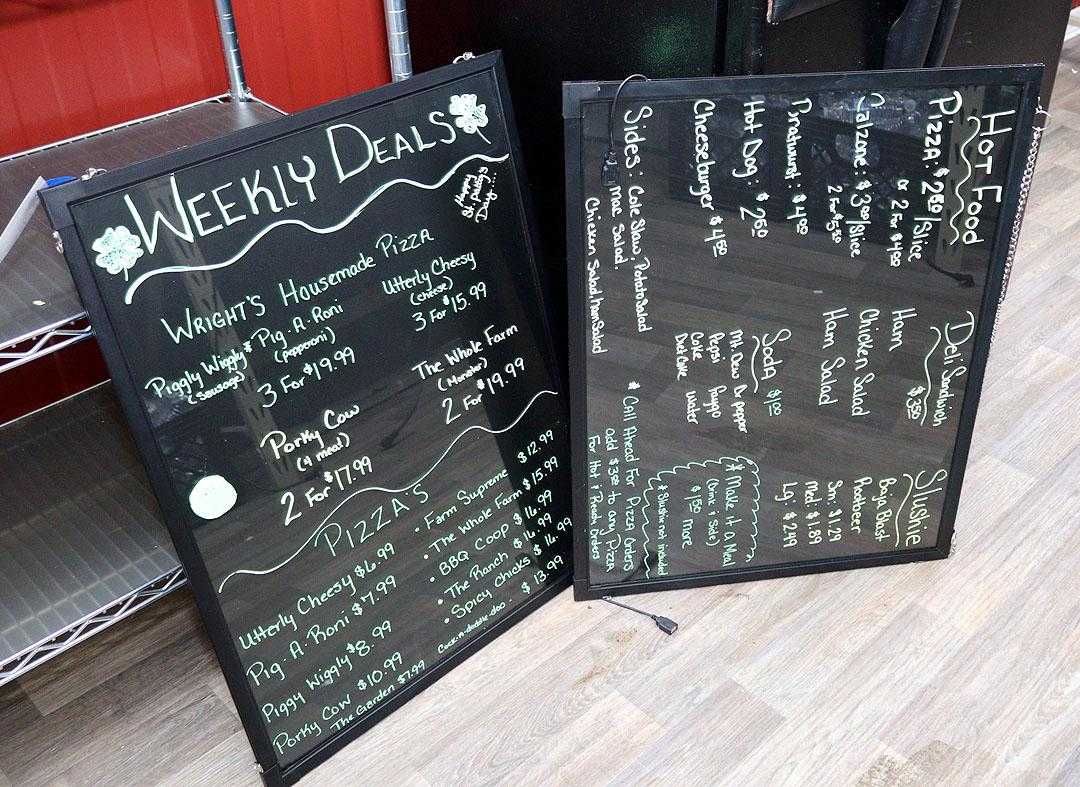 WEEKLY DEALS
Happy
St. Patty's
Day...
WRIGHT'S HOUSEMADE PIZZA
Piggly Wiggly & Pig·A·Roni
(Sausage) (pepperoni)
3 For $19.99
Utterly Cheesy
(cheese)
3 For $15.99
Porky Cow
(4 meat)
2 For $17.99
The Whole Farm
(Monster)
2 For $19.99
PIZZA'S
Utterly Cheesy $6.99
Pig·A·Roni $7.99
Piggy Wiggly $8.99
Porky Cow $10.99
The Garden $7.99
• Farm Supreme $12.99
• The Whole Farm $15.99
• BBQ Coop $16.99
• The Ranch $16.99
• Spicy Chicks $16.99
Cock-A-doodle-doo $13.99
HOT FOOD
PIZZA: $2.50/Slice
or 2 For $4.50
Calzone: $3.00/Slice
2 For $5.50
Bratwurst: $4.00
Hot Dog: $2.50
Cheeseburger $4.50
Sides: Cole Slaw, Potato Salad
Mac Salad.
Chicken Salad, Ham Salad
Deli Sandwich
$3.50
Ham
Chicken Salad
Ham Salad
Soda $1.00
Mt. Dew Dr pepper
Pepsi Faygo
Coke Water
Diet Coke
* Call Ahead For Pizza Orders
add $3.00 to any Pizza
For Hot & Ready Orders
Slushie
Baja Blast
Rootbeer
Sm: $1.29
Med: $1.89
Lg: $2.49
* Make it a Meal
(Drink & Side)
$1.50 more
* Slushie not included